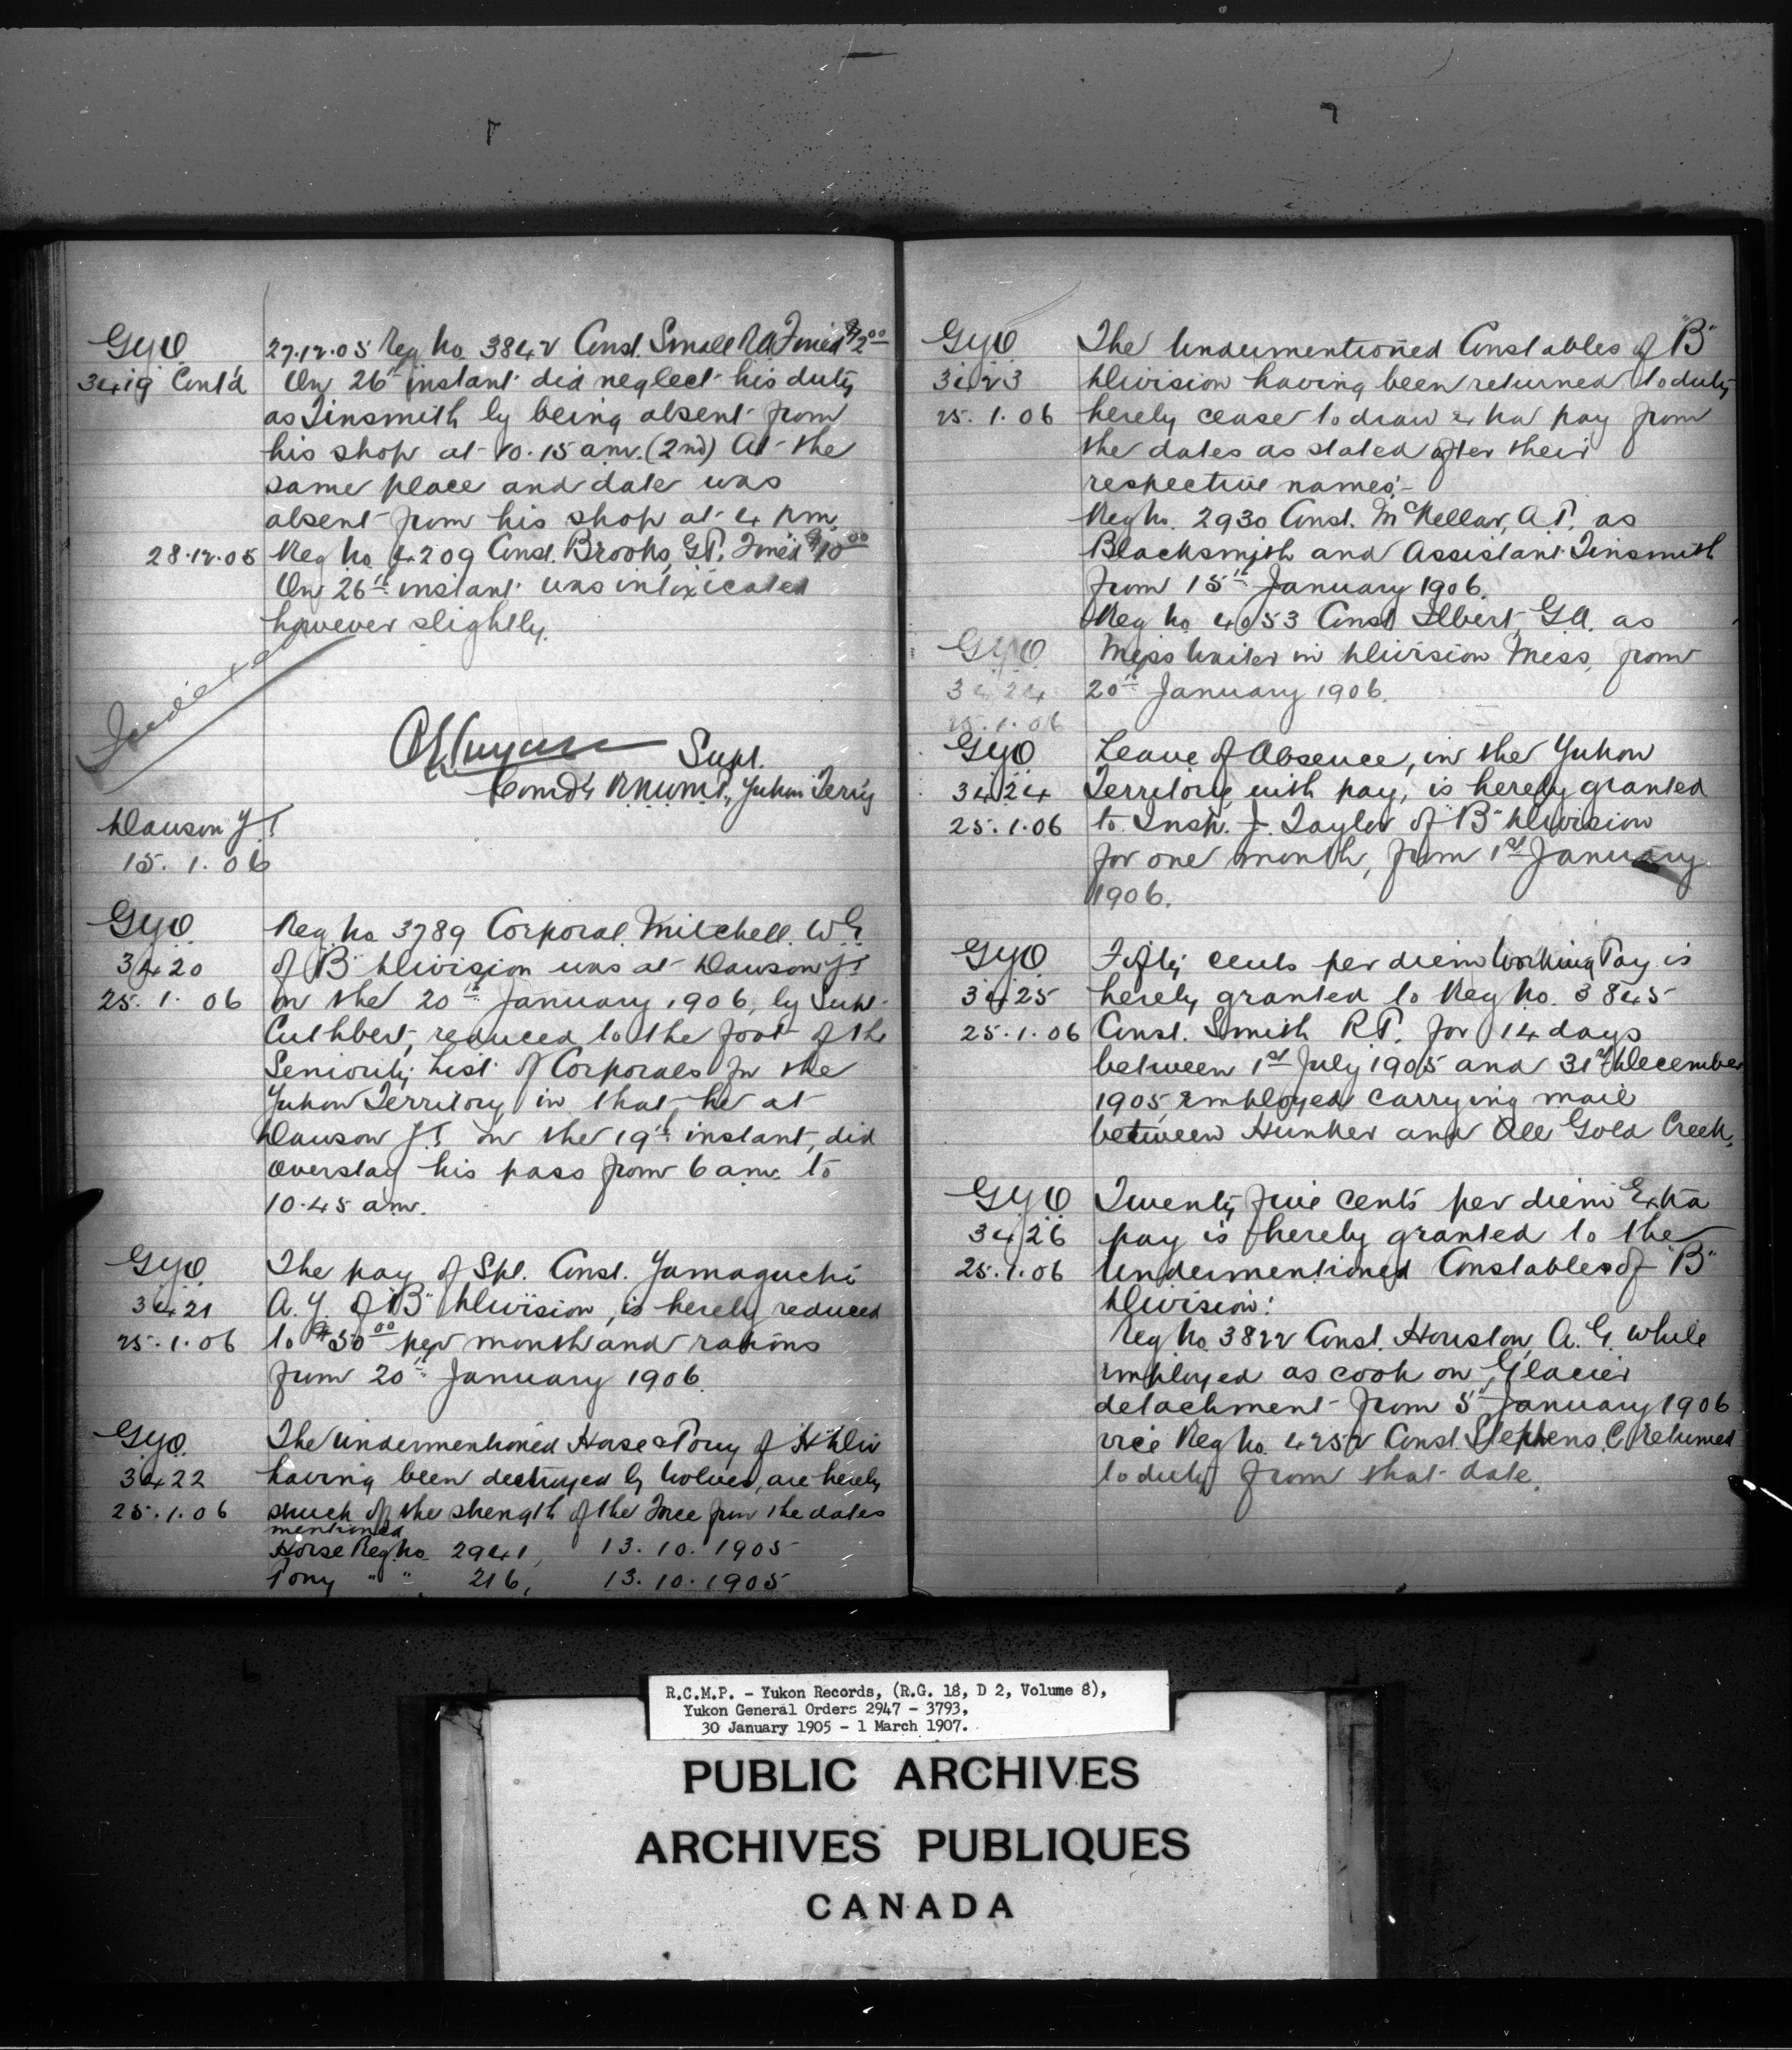 GYO
3419 Cont'd
27.12.05 Reg No. 3842 Const. Small RA Fined $2.00
On 26th instant did neglect his duty
as Tinsmith by being absent from
his shop at 10.15 am. (2nd) At the
same place and date was
absent from his shop at 4 pm.
28.12.05 Reg No 4209 Const. Brooks, G.P. Fined $10.00
On 26th instant was intoxicated
however slightly.
Indexed
Supt.
Comd'g R.N.W.M.P., Yukon Terr'y
Dawson Y.T.
15. 1. 06
GYO
3420
25. 1. 06
Reg No 3789 Corporal Mitchell. W.G.
of "B" Division was at Dawson Y.T.
on the 20th January 1906, by Supt.
Cuthbert, reduced to the foot of the
Seniority List of Corporals in the
Yukon Territory in that he at
Dawson Y.T. on the 19th instant, did
overstay his pass from 6 am. to
10.45 am.
GYO
3421
25.1.06
The pay of Spl. Const. Yamaguchi
A.Y. of "B" Division, is hereby reduced
to $50.00 per month and rations
from 20th January 1906.
GYO.
3422
25.1.06
The undermentioned Horse & Pony of H Div
having been destroyed by Wolves, are hereby
struck off the strength of the Force from the dates
mentioned
Horse Reg. No. 2941, 13. 10. 1905
Pony " " 216, 13. 10. 1905
GYO
3423
25. 1. 06
The Undermentioned Constables of "B"
Division having been returned to duty
hereby cease to draw extra pay from
the dates as stated after their
respective names:-
Reg No. 2930 Const. McKellar, A.P. as
Blacksmith and Assistant Tinsmith
from 15th January 1906.
Reg No 4053 Const Ilbert, G.A. as
Mess Waiter in Division Mess, from
20th January 1906.
GYO
3424
25.1.06
GYO
3424
25.1.06
Leave of Absence, in the Yukon
Territory with pay, is hereby granted
to Insp. J. Taylor of "B" Division
for one month, from 1st January
1906.
GYO
3425
25.1.06
Fifty cents per diem Working Pay is
hereby granted to Reg No. 3845
Const. Smith R.P. for 14 days
between 1st July 1905 and 31st December
1905, employed carrying mail
between Hunker and All Gold Creek.
GYO
3426
25.1.06
Twenty five cents per diem Extra
pay is hereby granted to the
Undermentioned Constables of "B"
Division:
Reg No 3822 Const. Houston, A. G. While
employed as cook on Glacier
detachment from 5th January 1906
vice Reg No. 4252 Const. Stephens, C. Returned
to duty from that date.
R.C.M.P. - Yukon Records, (R.G. 18, D 2, Volume 8),
Yukon General Orders 2947 - 3793,
30 January 1905 - 1 March 1907.
PUBLIC ARCHIVES
ARCHIVES PUBLIQUES
CANADA